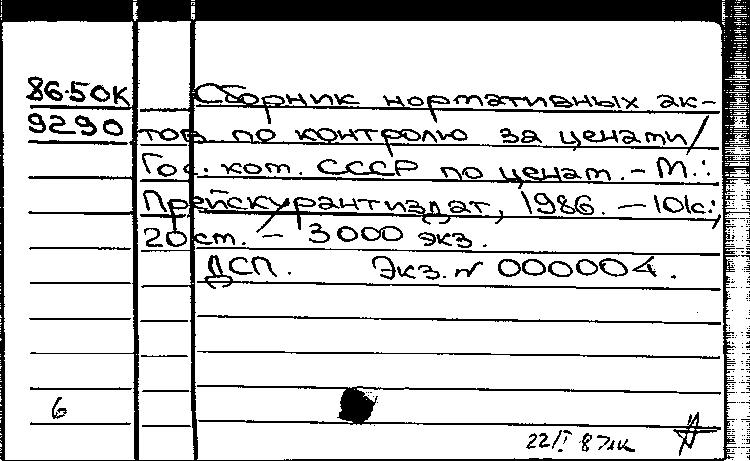 86-50К Сборник нормативных ак-
9290 тов по контролю за ценами /
Гос. ком. СССР по ценам. - М.:
Прейскурантиздат, 1986. - 101с.;
20 см. - 3000 экз.
ДСП. Экз. № 000004.
6
22/I 87